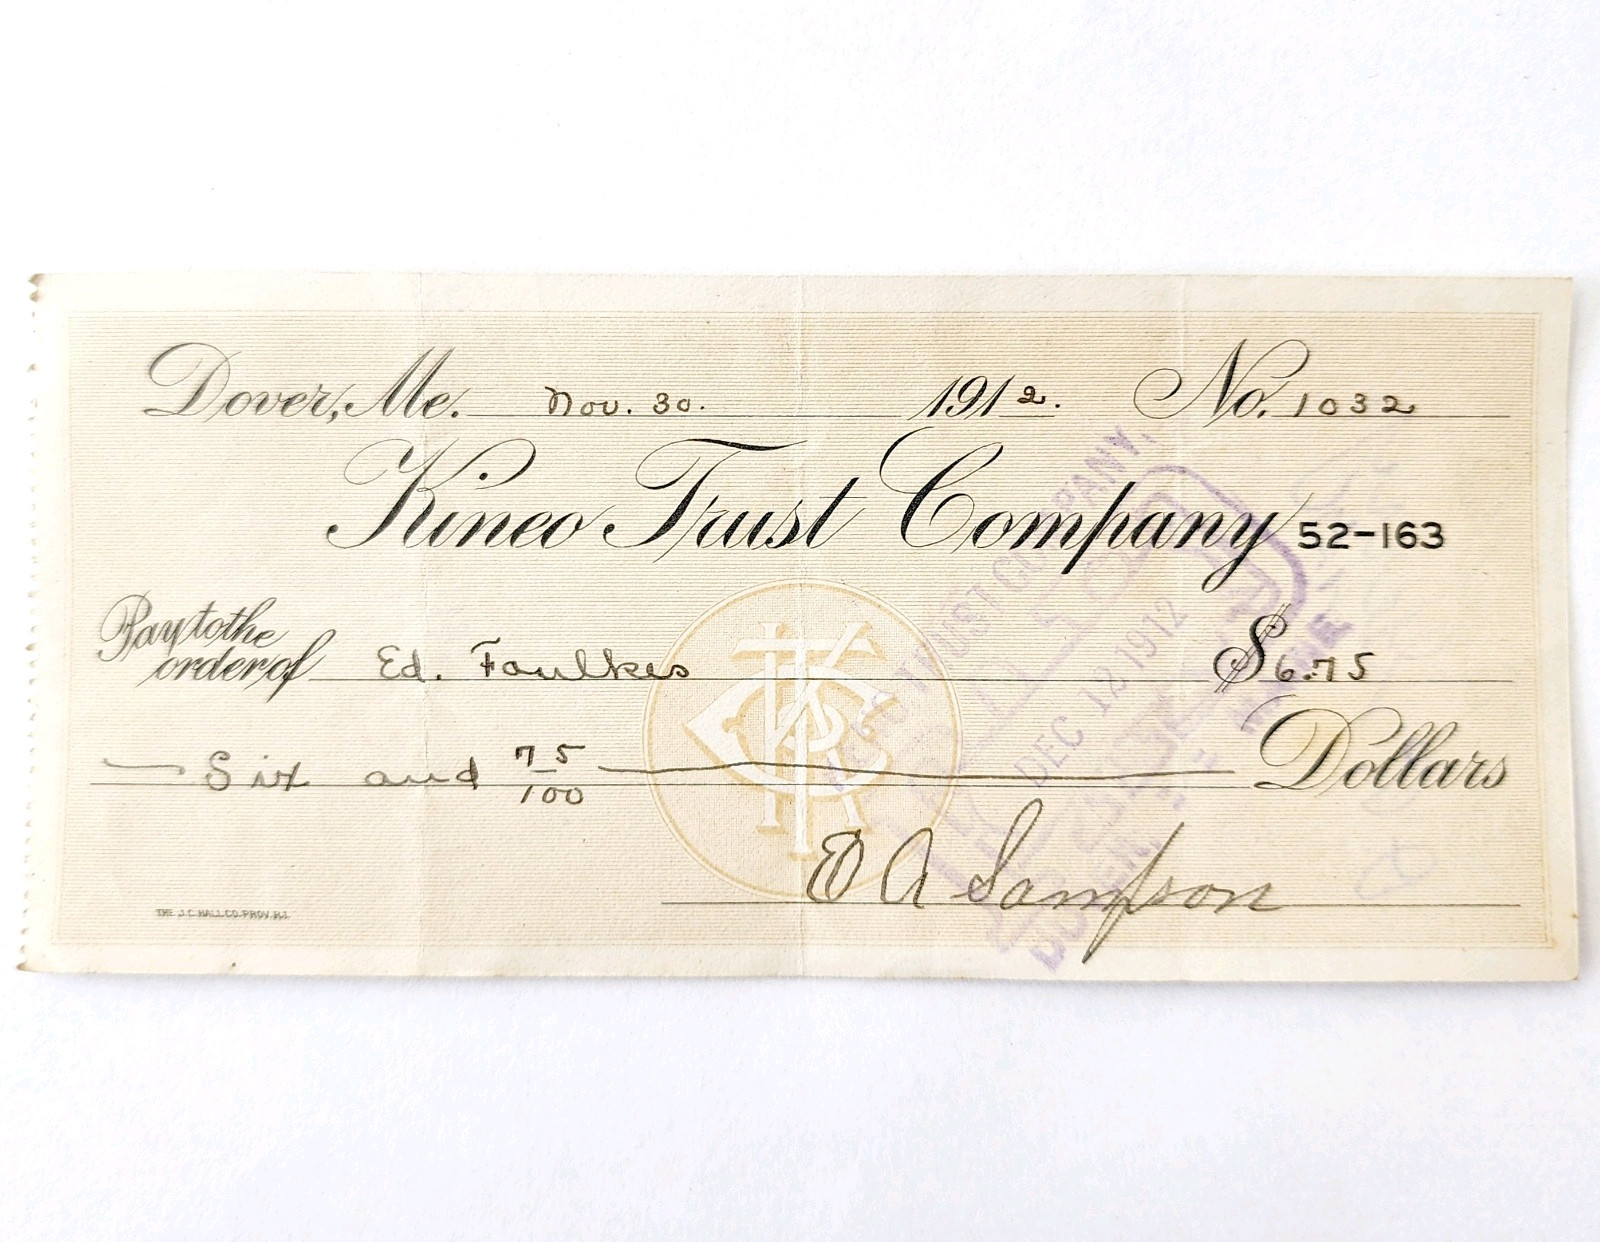 Dover, Me. Nov. 30. 1912. No. 1032
Kineo Trust Company 52-163
Pay to the
order of Ed. Faulkes $6.75
Six and 75/100 Dollars
E A Sampson
THE J.C. HALL CO. PROV. R.I.
TRUST COMPANY,
DEC 12 1912
DOVER,